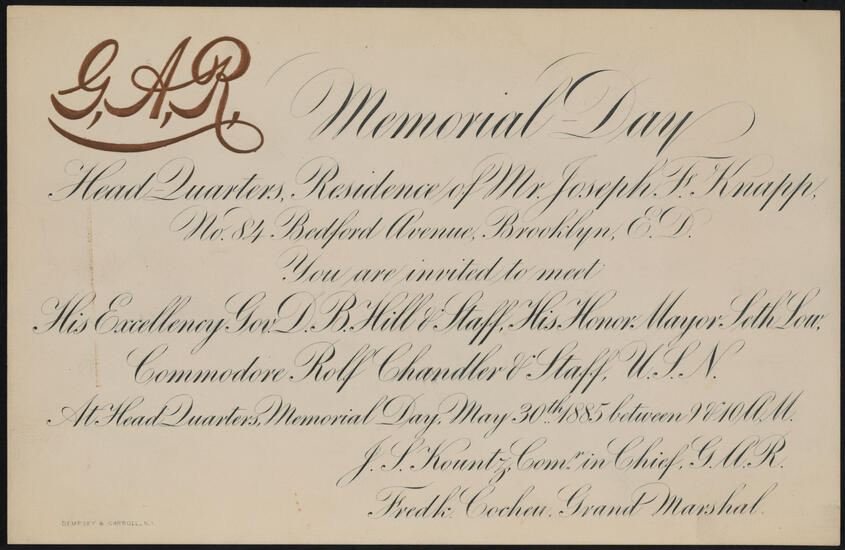 G.A.R.
Memorial Day
Head Quarters, Residence of Mr. Joseph F. Knapp,
No. 84 Bedford Avenue, Brooklyn, E.D.
You are invited to meet
His Excellency Gov. D. B. Hill & Staff, His Honor Mayor Seth Low,
Commodore Rolf Chandler & Staff, U.S.N.
At Head Quarters, Memorial Day, May 30th 1885 between 9 & 10, A.M.
J. S. Kountz, Comr. in Chief, G.A.R.
Fredk. Cocheu, Grand Marshal.
DEMPSEY & CARROLL, N.Y.